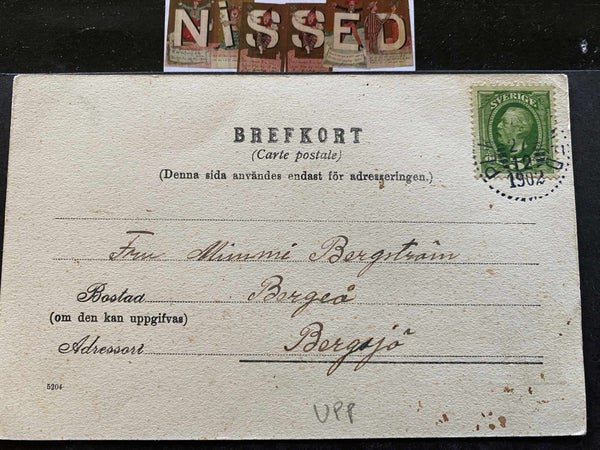 NiSSED
BREFKORT
SVERIGE
(Carte postale)
(Denna sida användes endast för adresseringen.)
2
12
1902
Fru Mimmi Bergström
Bostad
Bergeå
(om den kan uppgifvas)
Adressort
Bergsjö
5204
UPP